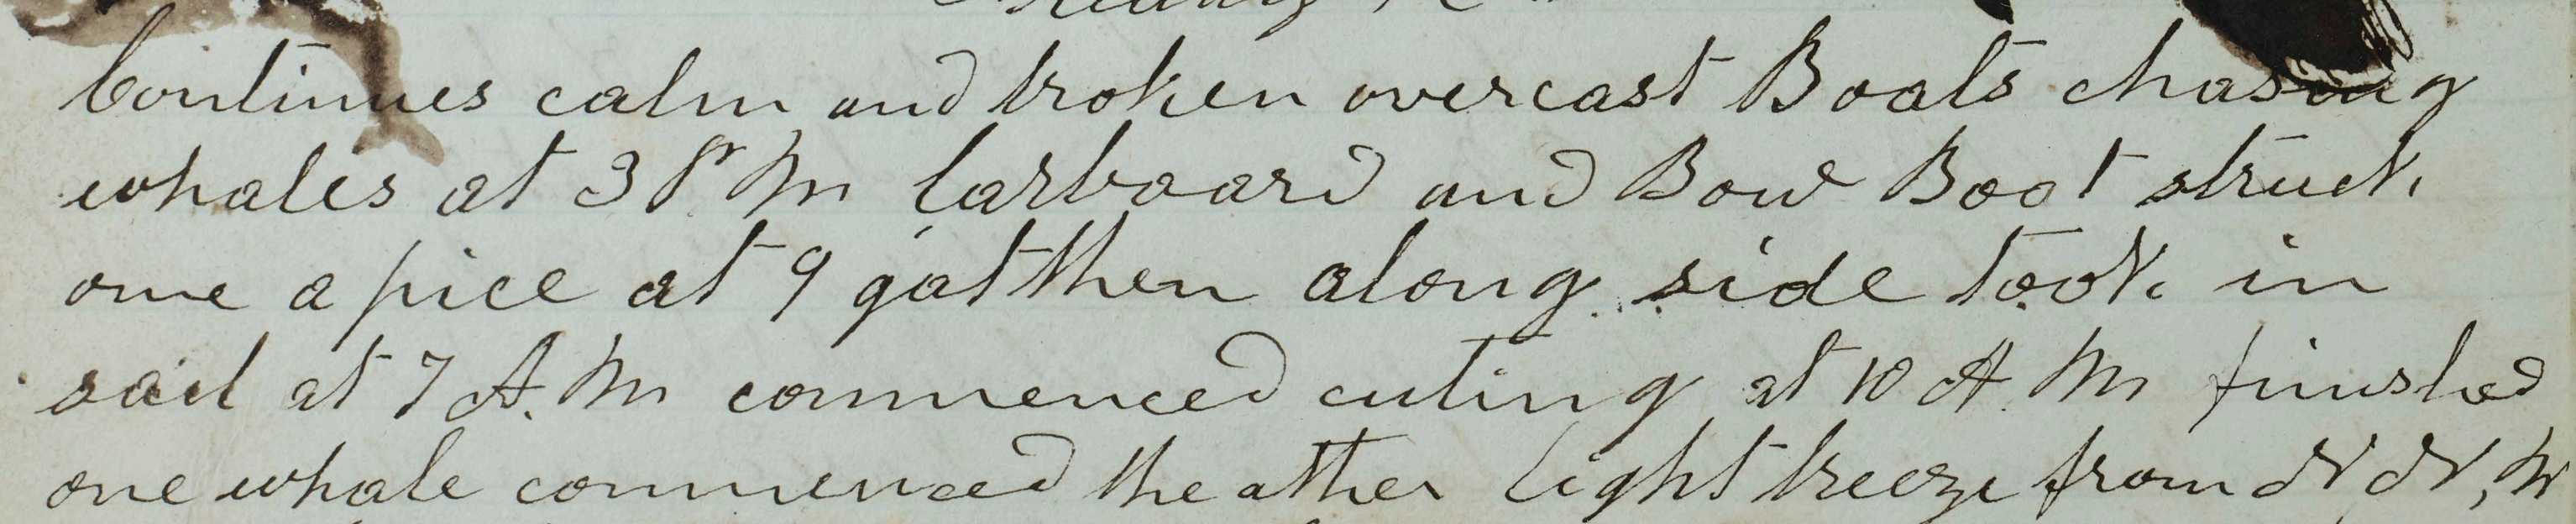 Continues calm and broken overcast Boats chasing
whales at 3 P M larboard and Bow Boat struck
one a pice at 9 got then along side took in
sail at 7 A. M commenced cuting at 10 A. M finished
one whale commenced the other light breeze from N N, W